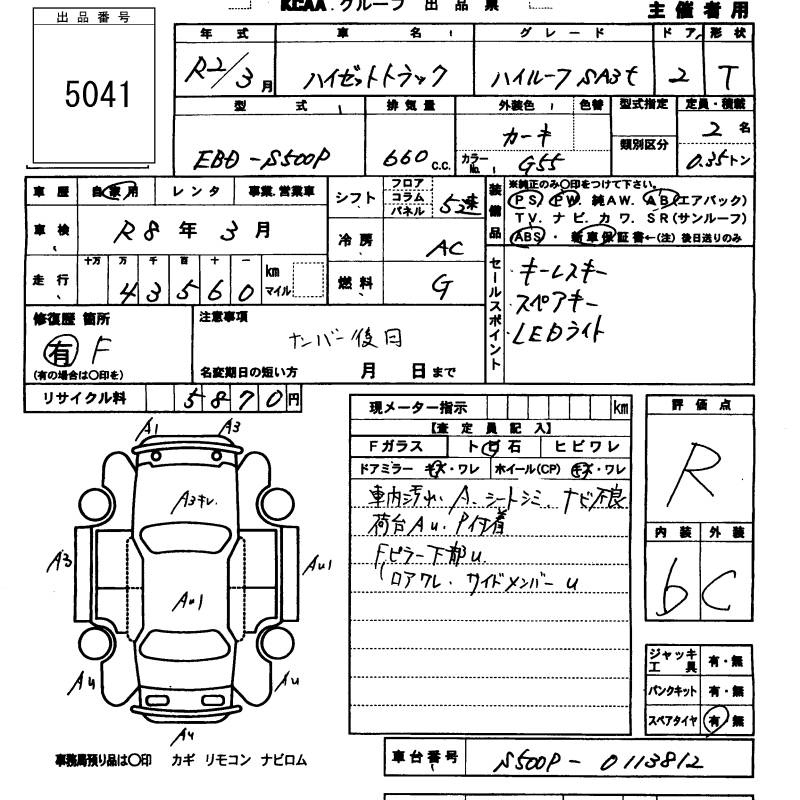 KCAA.グループ 出品票
主催者用
出品番号
5041
年式 車名 グレード ドア 形状
R2/3月 ハイゼットトラック ハイルーフ SA3t 2 T
型式 排気量 外装色 色替 型式指定 定員・積載
カーキ 類別区分 2名
EBD-S500P 660 C.C. カラーNo. G55 0.35トン
車歴 自家用 レンタ 事業.営業車
シフト フロア コラム パネル 5速
装備品
※純正のみ〇印をつけて下さい。
PS PW 純AW. AB(エアバック)
TV.ナビ.カワ.SR(サンルーフ)
ABS・新車保証書←(注)後日送りのみ
車検 R8年3月
冷房 AC
走行 十万 万 千 百 十 一
43560 km マイル
燃料 G
セールスポイント
キーレスキー
スペアキー
LEDライト
修復歴 箇所
有 F
(有の場合は〇印を)
注意事項
ナンバー後日
名変期日の短い方 月 日まで
リサイクル料 5870円
現メーター指示 km
【査定員記入】
Fガラス ト ヒ 石 ヒビワレ
ドアミラー キズ・ワレ ホイール(CP) キズ・ワレ
車内汚れ. A. シートシミ ナビ不良
荷台Au. P付着
Fピラー下部u.
ロアワレ. サイドメンバーu
評価点
R
内装 外装
b C
A1 A3
A3キレ.
A3
Au1
Au1
Au
Au
A4
ジャッキ工具 有・無
パンクキット 有・無
スペアタイヤ 有・無
事務局預り品は〇印 カギ リモコン ナビロム
車台番号 S500P-0113812